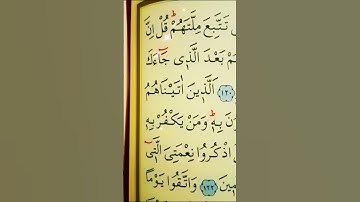 تَتَّبِعَ مِلَّتَهُمْ ۜ قُلْ اِنَّ
بَعْدَ الَّذٖي جَٓاءَكَ
﴿١٢٠﴾ اَلَّذٖينَ اٰتَيْنَاهُمُ
بِهٖ ۜ وَمَنْ يَكْفُرْ بِهٖ
اذْكُرُوا نِعْمَتِيَ الَّتٖٓي
﴿١٢٢﴾ وَاتَّقُوا يَوْماً